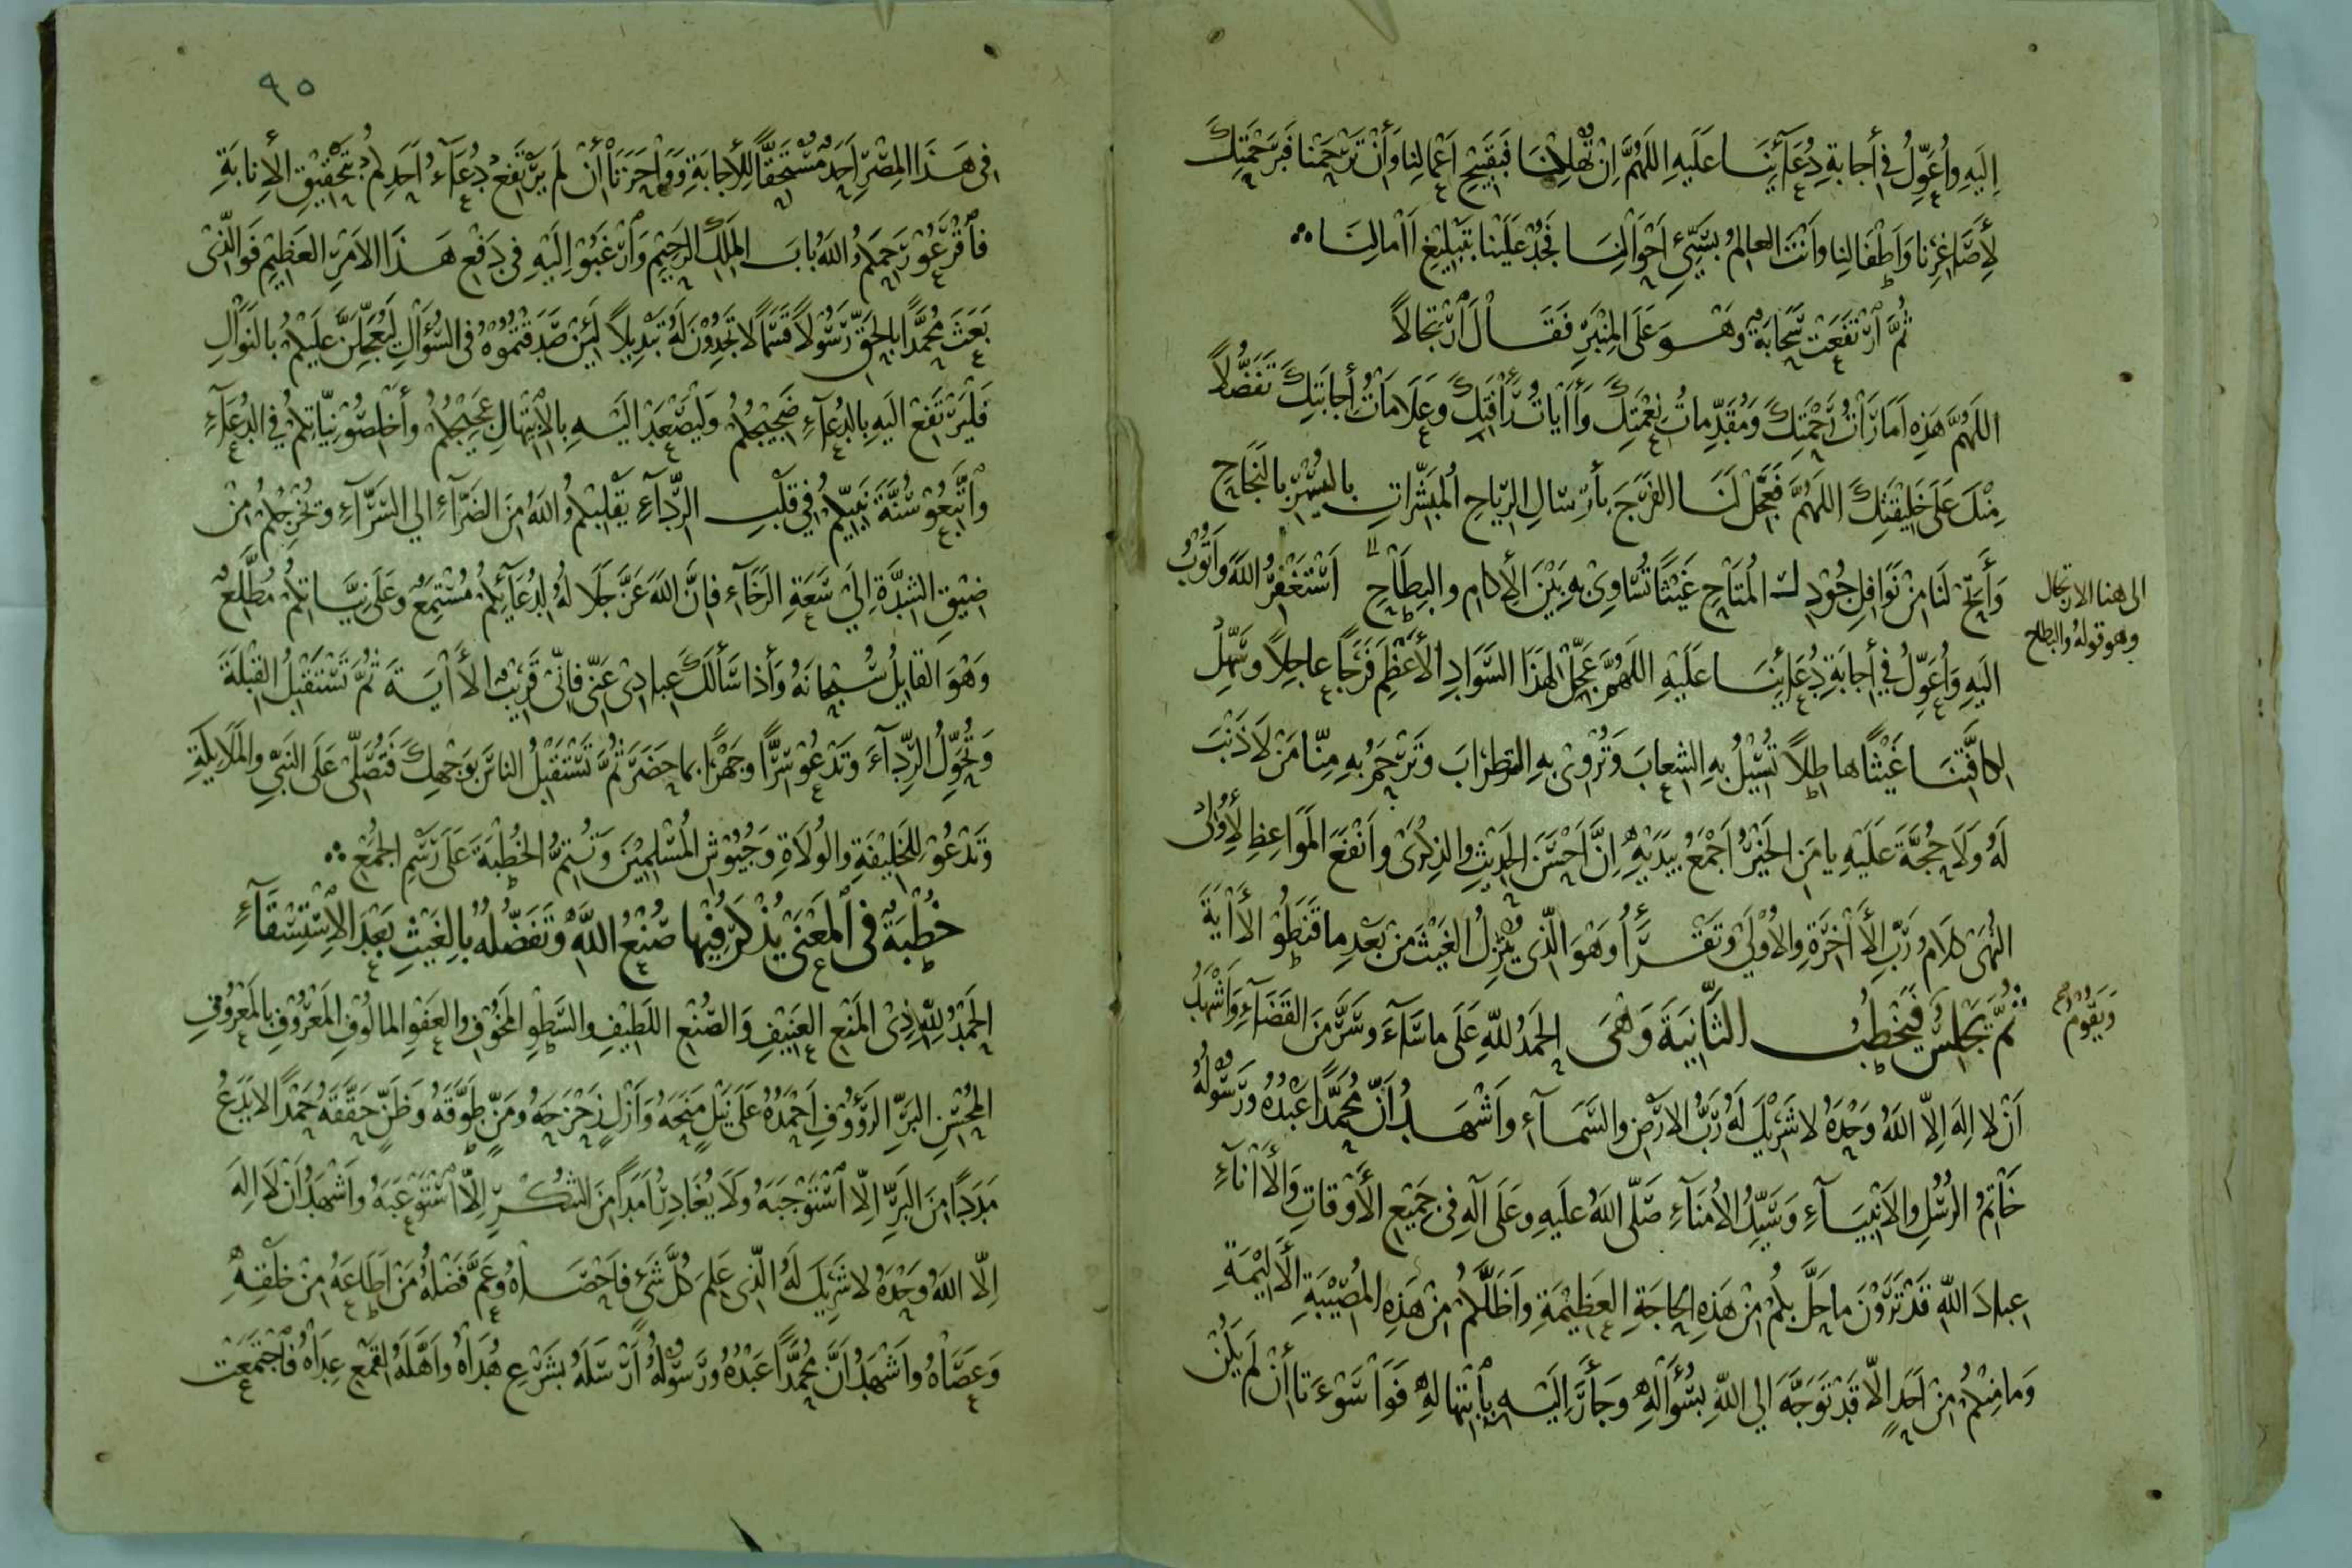 اِلَيهِ وأُعَوِّلُ في أجابةِ دُعَآئِنَا عَلَيهِ اللَهُمَّ اِنْ تُهْلِكْنَا فَبِقَبِيْحِ اَعْمالِنا وَأنْ تَرْحَمْنا فَبِرَحْمَتِكَ
لِأَصَاغِرِنا وَاَطْفَالِنا وَاَنْتَ العالِمُ بِسَيِّئِ اَحْوَالِنَا فَجُدْ عَلَيْنا بِتَبْلِيْغِ اَامالِنَا
ثُمَّ اَرْتَفَعَتْ سَحَابَةٌ وهْوَ عَلَى المِنْبَرِ فَقَالَ اَرْتِجَالاً
اللَهُمَّ هَذِهِ اَمَارَاْتُ رَحْمَتِكَ وَمُقَدِّماتُ نِعْمَتِكَ وَأَاْيَاتُ رَأْفَتِكَ وعَلَامَاتُ أجابَتِكَ تَفَضُّلاً
مِنْكَ عَلَى خَلِيْقَتِكَ اللَهُمَّ فَعَجِّلْ لَنَا الفَرَجَ بِأرْسَالِ الرِّيَاحِ المُبَشِّرَاتِ بِاليُسْرِ بالنَجَاحِ
وَأَبِحْ لَنَا مِنْ نَوَافِلِ جُوْدِكَ المُتَاحِ غَيْثًا تُسَاوِيْ بِهِ بَيْنَ الأكامِ والبِطَاحِ اَسْتَغْفِرُ اللهَ وَاَتُوْبُ
الى هنا الارتجال
وهو قوله والبطاح
اليَهِ وَأُعَوِّلُ في أجابَةِ دُعَائِنَا عَلَيْهِ اللَهُمَّ عَجِّلْ لِهَذَا السَّوَادِ الأعْظَمِ فَرَجًا عاجِلاً وسَهِّلْ
لِكافَّتِنَا غَيْثًا هاطِلاً تُسِيْلُ بِهِ الشِعابَ وَتُرْوِيْ بِهِ الظِرَابَ وَتَرْحَمُ بِهِ مِنّا مَنْ لَا ذَنْبَ
لَهُ وَلَا حُجَّةَ عَلَيْهِ يا مَنِ الخَيْرُ اَجْمَعُ بِيَدَيْهِ اِنَّ اَحْسَنَ الحَدِيْثِ والذِكْرَى وأَنْفَعَ المَوَاعِظِ لأُوْلى
النُهَى كلامُ رَبِّ الأَاْخِرَةِ والأُوْلَى وتَقْرَأُ وَهْوَ الَّذِي يُنْزِلُ الغَيْثَ مِنْ بَعْدِ ما قَنَطُوْا الأَاْيَةَ
ثُمَّ تَجْلِسُ فَتَخْطُبُ الثَّانِيَةَ وَهْىَ الحَمْدُ للهِ عَلَى ما سَاْءَ وسَرَّ مِنَ القَضَآءِ وَاَشْهَدُ
وَيَقُوْمُ صح
اَنْ لا اِلَهَ اِلاّ اللهُ وَحْدَهُ لا شَرِيْكَ لَهُ رَبُّ الارْضِ والسَّمَآءِ واَشْهَدُ اَنَّ مُحَمَّدًا عَبْدُهُ ورَسُوْلُهُ
خَاتِمُ الرُسُلِ والاَنْبِيَآءِ وَسَيِّدُ الأُمَنَآءِ صَلَّى اللهُ عَلَيهِ وعَلَى آلِهِ في جَمِيْعِ الأَوْقَاتِ وَالأَاْنَآءِ
عِبادَ اللهِ قَدْ تَرَوْنَ ماحَلَّ بِكُمْ مِنْ هَذِهِ الحاجَةِ العَظِيْمَةِ واَظَلَّكُمْ مِنْ هَذِهِ المُصِيْبَةِ الأَلِيْمَةِ
وَما مِنْكُمْ مِنْ اَحَدٍ إلاّ قَدْ تَوَجَّهَ الى اللهِ بِسُؤَالِهِ وَجَأَرَ اِلَيْهِ بِأبْتِهالِهِ فَوَاْسَوْءَتَا أنْ لَمْ يَكُنْ
٩٥
في هَذَا المِصْرِ اَحَدٌ مُسْتَحِقًّا لِلأجابَةِ وَوَاْحَرَنَاْ أنْ لَم يَرْتَفِعْ دُعَآءُ اَحَدِكُمْ بِتَحْقِيْقِ الأنابَةِ
فاَقْرَعُوْ رَحِمَكُمُ اللهُ بابَ المَلِكِ الرَحِيْمِ وَاَرْغَبُوْ اِلَيْهِ في دَفْعِ هَذَا الاَمْرِ العَظِيْمِ فَوَالَّذِيْ
بَعَثَ مُحَمَّدًا بِالحَقِّ رَسُوْلاً قَسَمًا لا تَجِدُوْنَ لَهُ تَبْدِيْلاً لَئِنْ صَدَقْتُمُوْهُ في السُؤَالِ لَيُعَجِّلَنَّ عَلَيْكُمْ بِالنَوَالِ
فَلْيَرْتَفِعْ اليَهِ بِالدُعَآءِ ضَجِيْجُكُمْ وَلْيَصْعَدْ اليَهِ بِالأبْتِهالِ عَجِيْجُكُمْ وأَخْلِصُوْ نِيَّاتِكُمْ في الدُعَآءِ
وأتَّبِعُوْ سُنَّةَ نَبِيِّكُمْ في قَلْبِ الرِّدَآءِ يَقْلِبْكُمُ اللهُ مِنَ الضَرَّآءِ الى السَرَّآءِ وتُخْرِجْكُمْ مِنْ
ضِيْقِ الشِدَّةِ اِلَى سَعَةِ الرَخَآءِ فاِنَّ اللهَ عَزَّ جَلَالُهُ لِدُعَآئِكُمْ مُسْتَمِعٌ وعَلَى نِيَّاتِكُمْ مُطَّلِعٌ
وَهْوَ القَايِلُ سُبْحَانَهُ وَأذا سَأَلَكَ عِبادِي عَنِّي فاِنِّي قَرِيْبٌ الأَاْيَةَ ثُمَّ تَسْتَقْبِلُ القِبْلَةَ
وَتُحَوِّلُ الرِّدَآءَ وَتَدْعُوْ سِرًّا وجَهْرًا بِما حَضَرَ ثُمَّ تَسْتَقْبِلُ الناسَ بِوَجْهِكَ فَتُصَلِّي عَلَى النَبِيِّ والمَلَايِكَةِ
وَتَدْعُوْ لِلخَلِيْفَةِ والوُلَاةِ وَجُيُوْشِ المُسْلِمِيْنَ وَتُتِمُّ الخُطْبَةَ عَلَى رَسْمِ الجُمَعِ
خُطْبَةٌ في المَعْنَى يُذْكَرُ فِيْها صُنْعُ اللهِ وَتَفَضُّلُهُ بِالغَيْثِ بَعْدَ الاسْتِسْقَآءِ
الحَمْدُ لِلّهِ ذِي المَنْعِ العَنِيْفِ وَالصُنْعِ اللَطِيْفِ والسَّطْوِ المَخُوْفِ والعَفْوِ المالُوْفِ المَعْرُوْفِ بِالمَعْرُوْفِ
المُحْسِنِ البَرِّ الرَؤُوْفِ اَحْمَدُهُ عَلَى نَيْلٍ مَنَحَهُ وَأَزْلٍ زَحْزَحَهُ ومَنٍّ طَوَّقَهُ وَظَنٍّ حَقَّقَهُ حَمْدًا لا يَدَعُ
مَدَدًا مِنَ البَرِّ اِلاّ اَسْتَوْجَبَهُ وَلَا يُغَادِرُ اَمَدًا مِنَ الشُكْرِ اِلاّ اَسْتَوْعَبَهُ وَاَشْهَدُ اَنْ لَا اِلَهَ
اِلاّ اللهُ وَحْدَهُ لا شَرِيْكَ لَهُ الّذِي عَلِمَ كُلَّ شَيْءٍ فاَحْصَاْهُ وَعَمَّ فَضْلُهُ مَنْ اَطَاعَهُ مِنْ خَلْقِهِ
وَعَصَاْهُ واَشْهَدُ اَنَّ مُحَمَّدًا عَبْدُهُ ورَسُوْلُهُ اَرْسَلَهُ بِشَرْعِ هُدَاْهُ واَهَّلَهُ لِقَمْعِ عِدَاْهُ فاَجْتَمَعَتْ